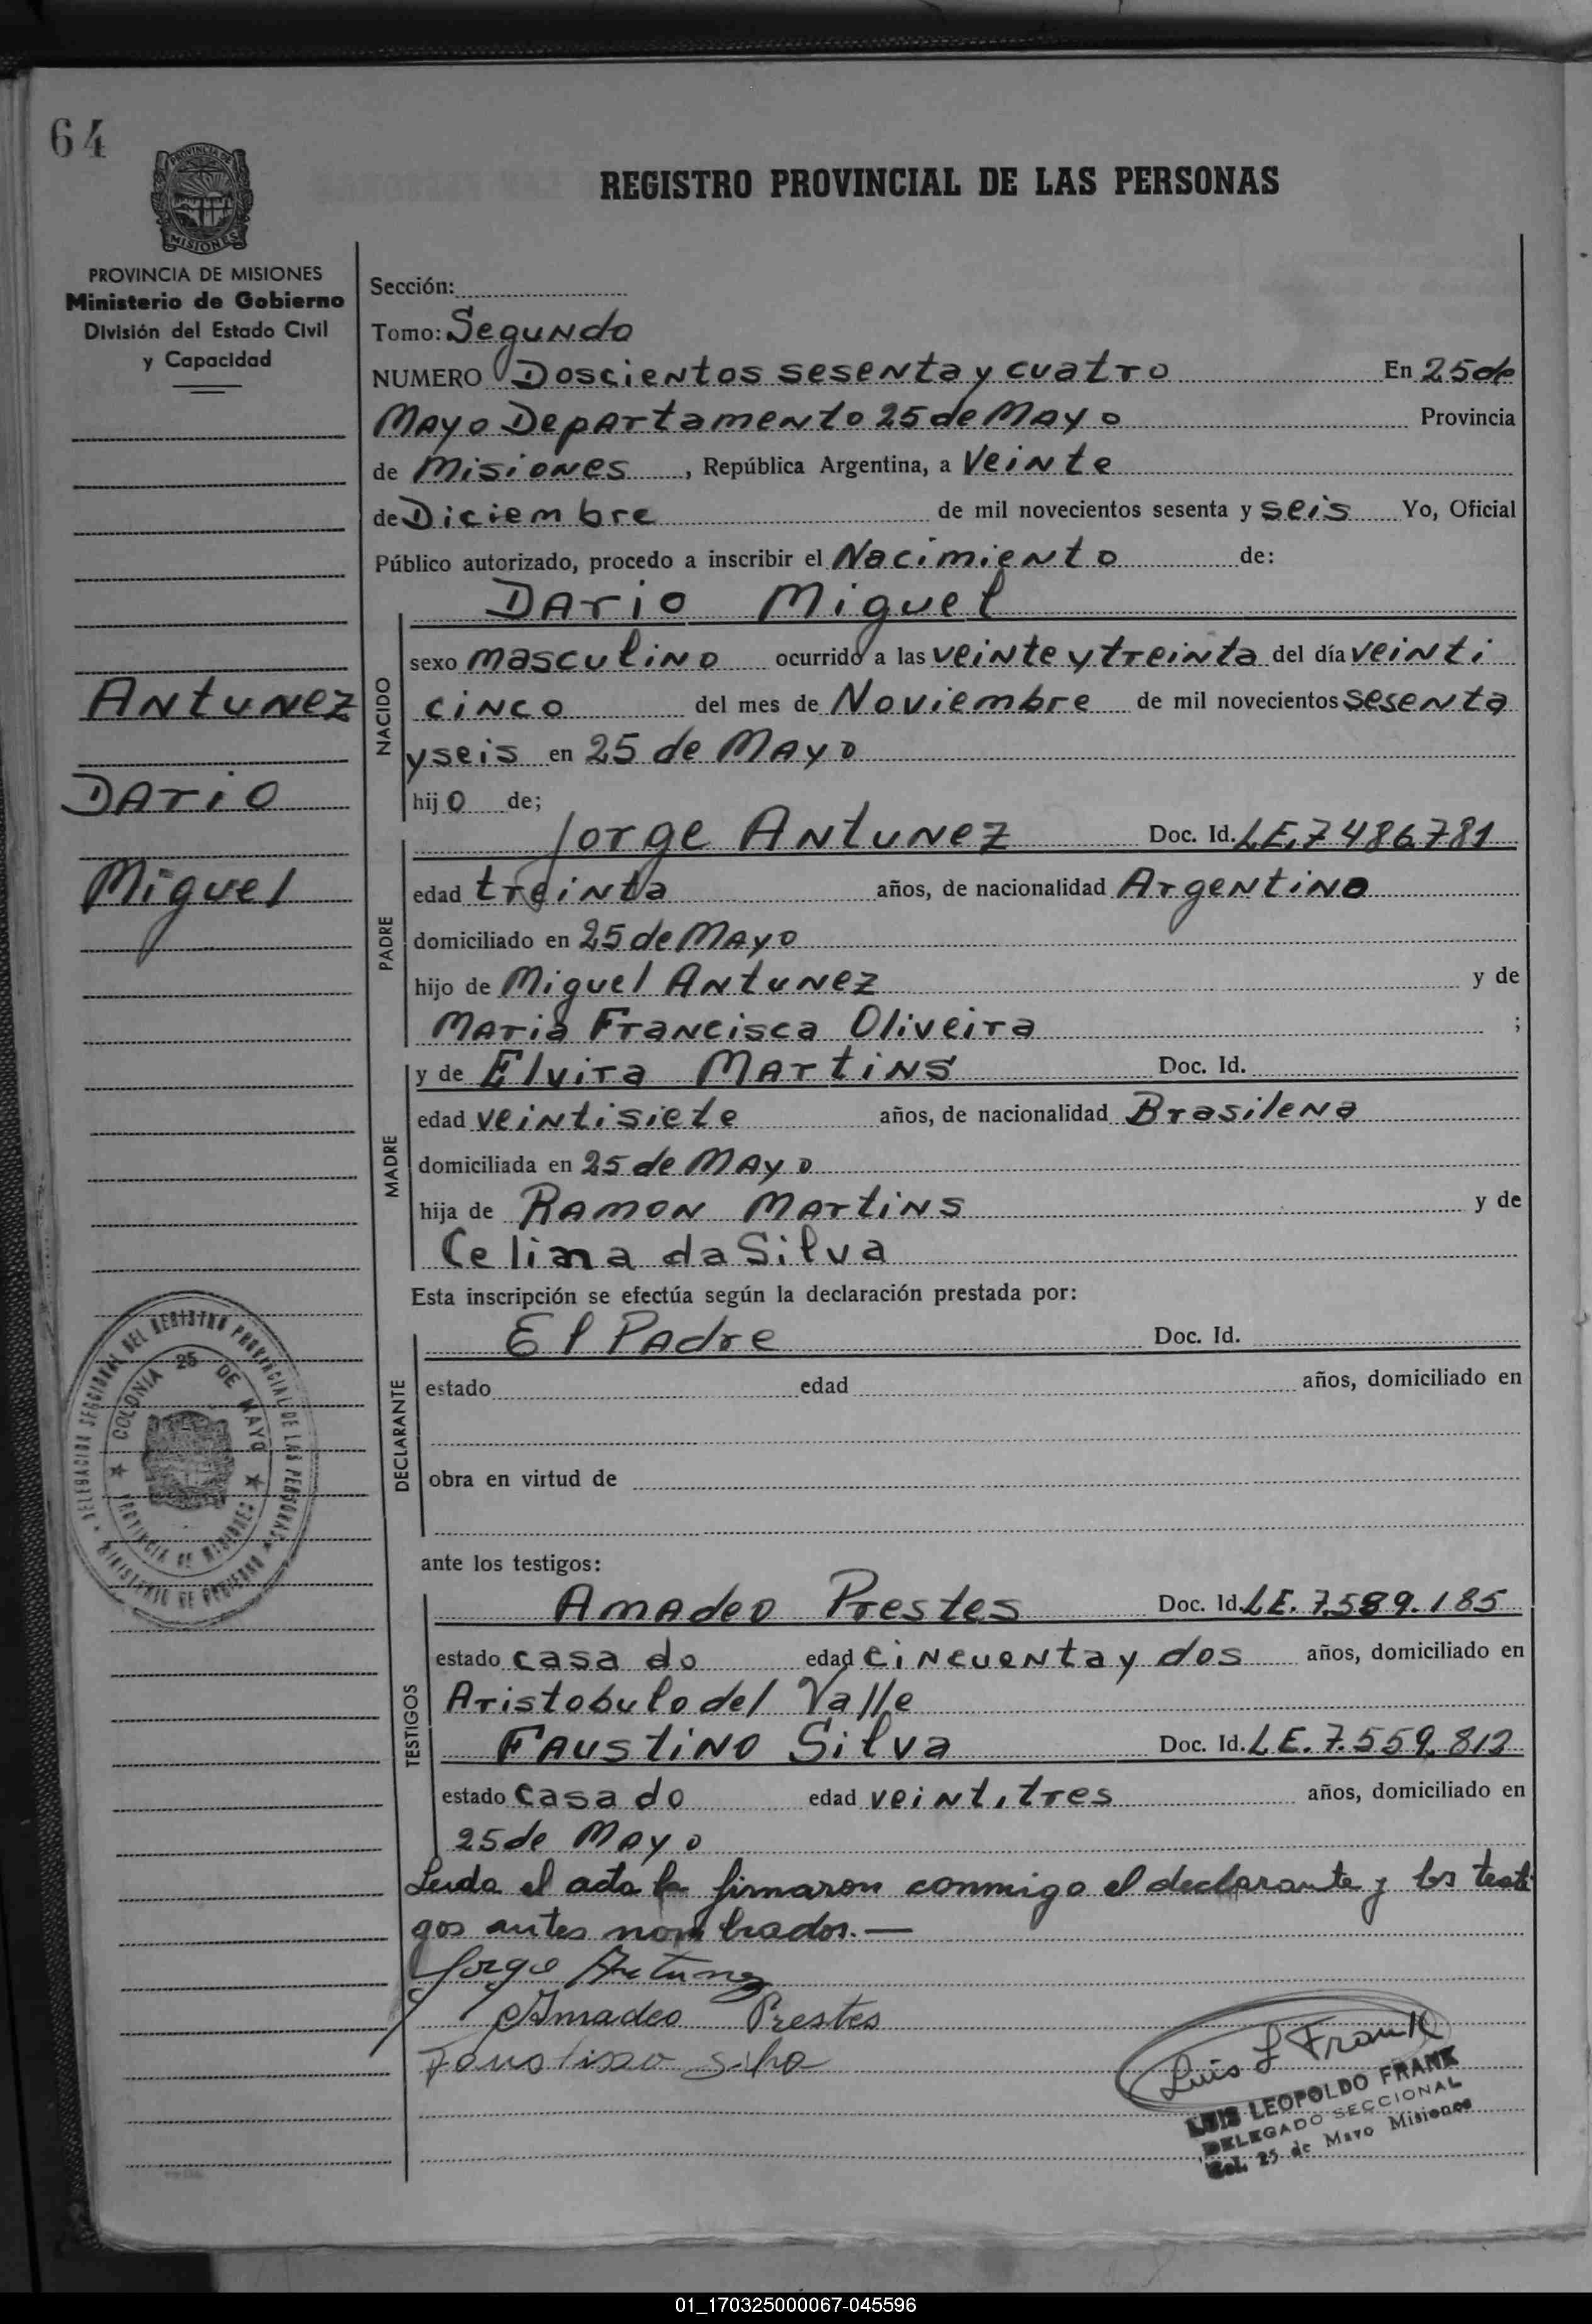 64
PROVINCIA DE
MISIONES
REGISTRO PROVINCIAL DE LAS PERSONAS
PROVINCIA DE MISIONES
Ministerio de Gobierno
División del Estado Civil
y Capacidad
Antunez
Dario
Miguel
Sección:
Tomo: Segundo
NUMERO Doscientos sesenta y cuatro En 25 de
Mayo Departamento 25 de Mayo Provincia
de Misiones, República Argentina, a Veinte
de Diciembre de mil novecientos sesenta y seis Yo, Oficial
Público autorizado, procedo a inscribir el Nacimiento de:
Dario Miguel
NACIDO
sexo masculino ocurrido a las veinte y treinta del día veinti
cinco del mes de Noviembre de mil novecientos sesenta
y seis en 25 de Mayo
hijo de;
PADRE
Jorge Antunez Doc. Id. LE. 7486781
edad treinta años, de nacionalidad Argentino
domiciliado en 25 de Mayo
hijo de Miguel Antunez y de
Maria Francisca Oliveira ;
MADRE
y de Elvira Martins Doc. Id.
edad veintisiete años, de nacionalidad Brasilena
domiciliada en 25 de Mayo
hija de Ramon Martins y de
Celina da Silva
Esta inscripción se efectúa según la declaración prestada por:
DECLARANTE
El Padre Doc. Id.
estado edad años, domiciliado en
obra en virtud de
ante los testigos:
TESTIGOS
Amadeo Prestes Doc. Id. LE. 7.589.185
estado casado edad cincuenta y dos años, domiciliado en
Aristobulo del Valle
Faustino Silva Doc. Id. LE. 7.559.812
estado casado edad veintitres años, domiciliado en
25 de Mayo
Leida el acta la firmaron conmigo el declarante y los testi
gos antes nombrados.—
Jorge Antunez
Amadeo Prestes
Faustino Silva
Luis L Frank
LUIS LEOPOLDO FRANK
DELEGADO SECCIONAL
Col. 25 de Mayo Misiones
DELEGACION SECCIONAL DEL REGISTRO PROVINCIAL DE LAS PERSONAS
MINISTERIO DE GOBIERNO
COLONIA 25 DE MAYO
PROVINCIA DE MISIONES
01_170325000067-045596